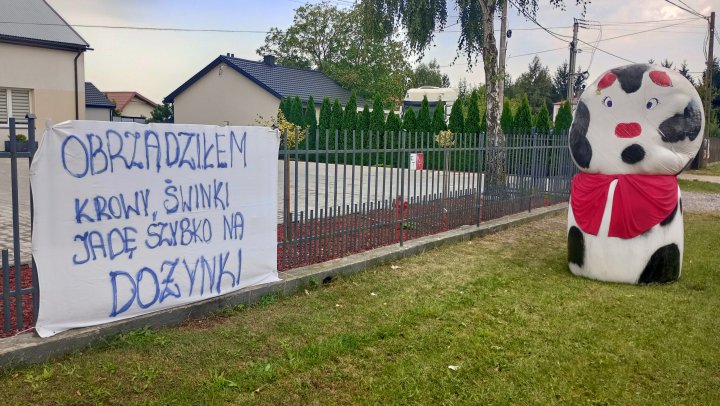 OBRZĄDZIŁEM
KROWY, ŚWINKI
JADĘ SZYBKO NA
DOŻYNKI